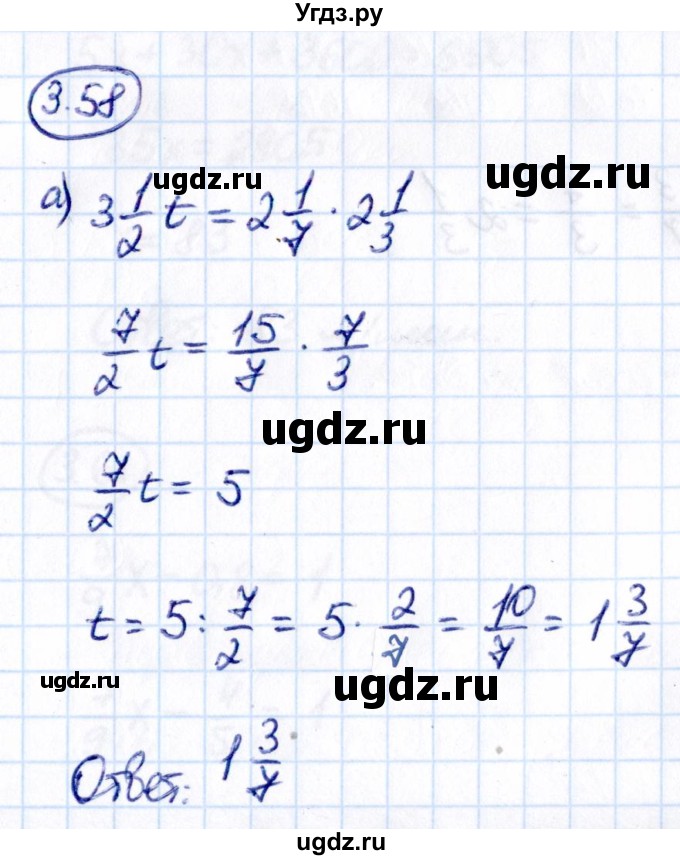 Угдз.ру
3.58
ugdz.ru ugdz.ru
а) 3 1/2 t = 2 1/7 · 2 1/3
7/2 t = 15/7 · 7/3
ugdz.ru
7/2 t = 5
t = 5 : 7/2 = 5 · 2/7 = 10/7 = 1 3/7
ugdz.ru ugdz.ru
Ответ: 1 3/7
ugdz.ru